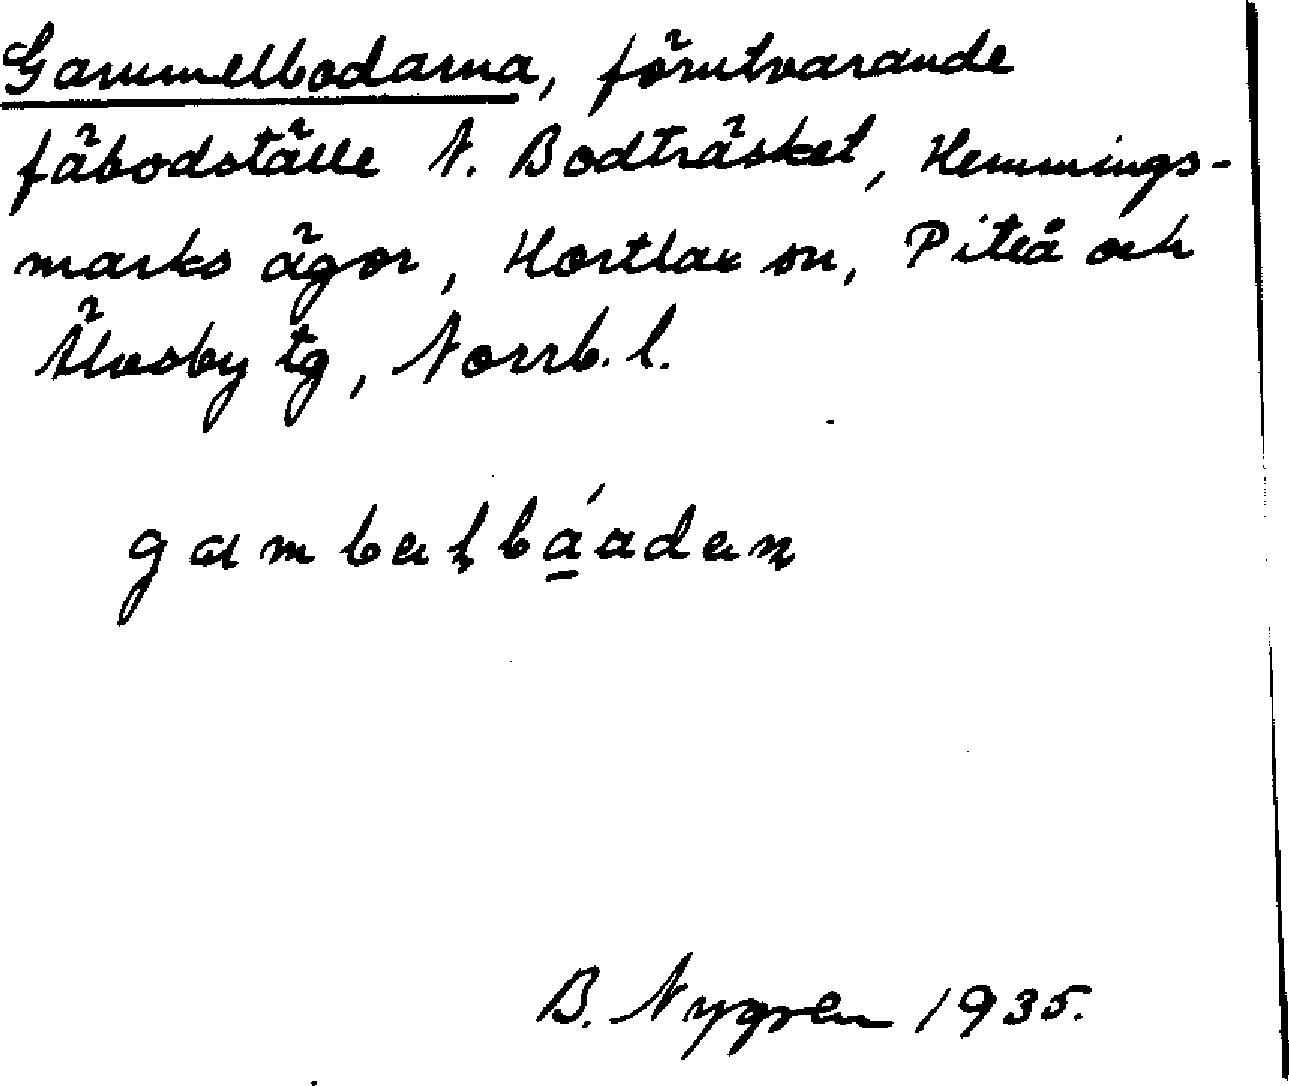 Gammelbodarna, förutvarande
fäbodställe N. Bodträsket, Hemmings-
marks ägor, Hortlax sn, Piteå och
Älvsby tg, Norrb. l.
gambalbáadan
B. Nygren 1935.